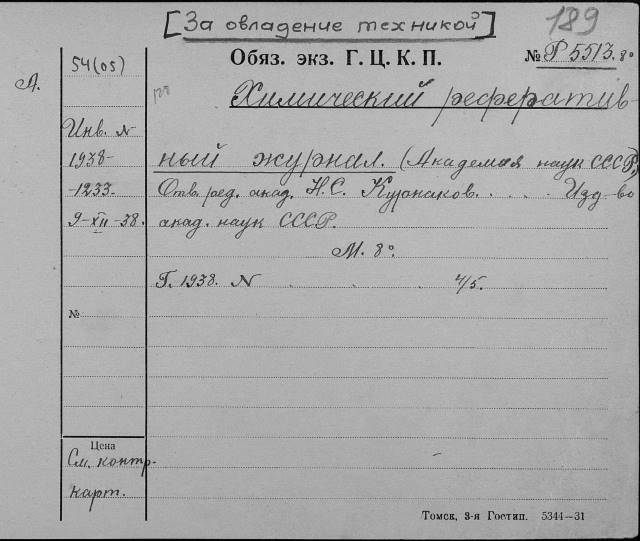 [За овладение техникой]
189
54(05)
Обяз. экз. Г. Ц. К. П.
№ Р 5513. 8°
А.
Химический рефератив-
Инв. N
1938-
ный журнал. (Академия наук СССР)
-1233.
Отв. ред. акад. Н.С. Курнаков. . . . Изд-во
9-XII-38.
акад. наук СССР.
М. 8°.
Г. 1938. N . . . 4/5.
№
Цена
См. контр.
карт.
Томск, 3-я Гостип. 5344—31